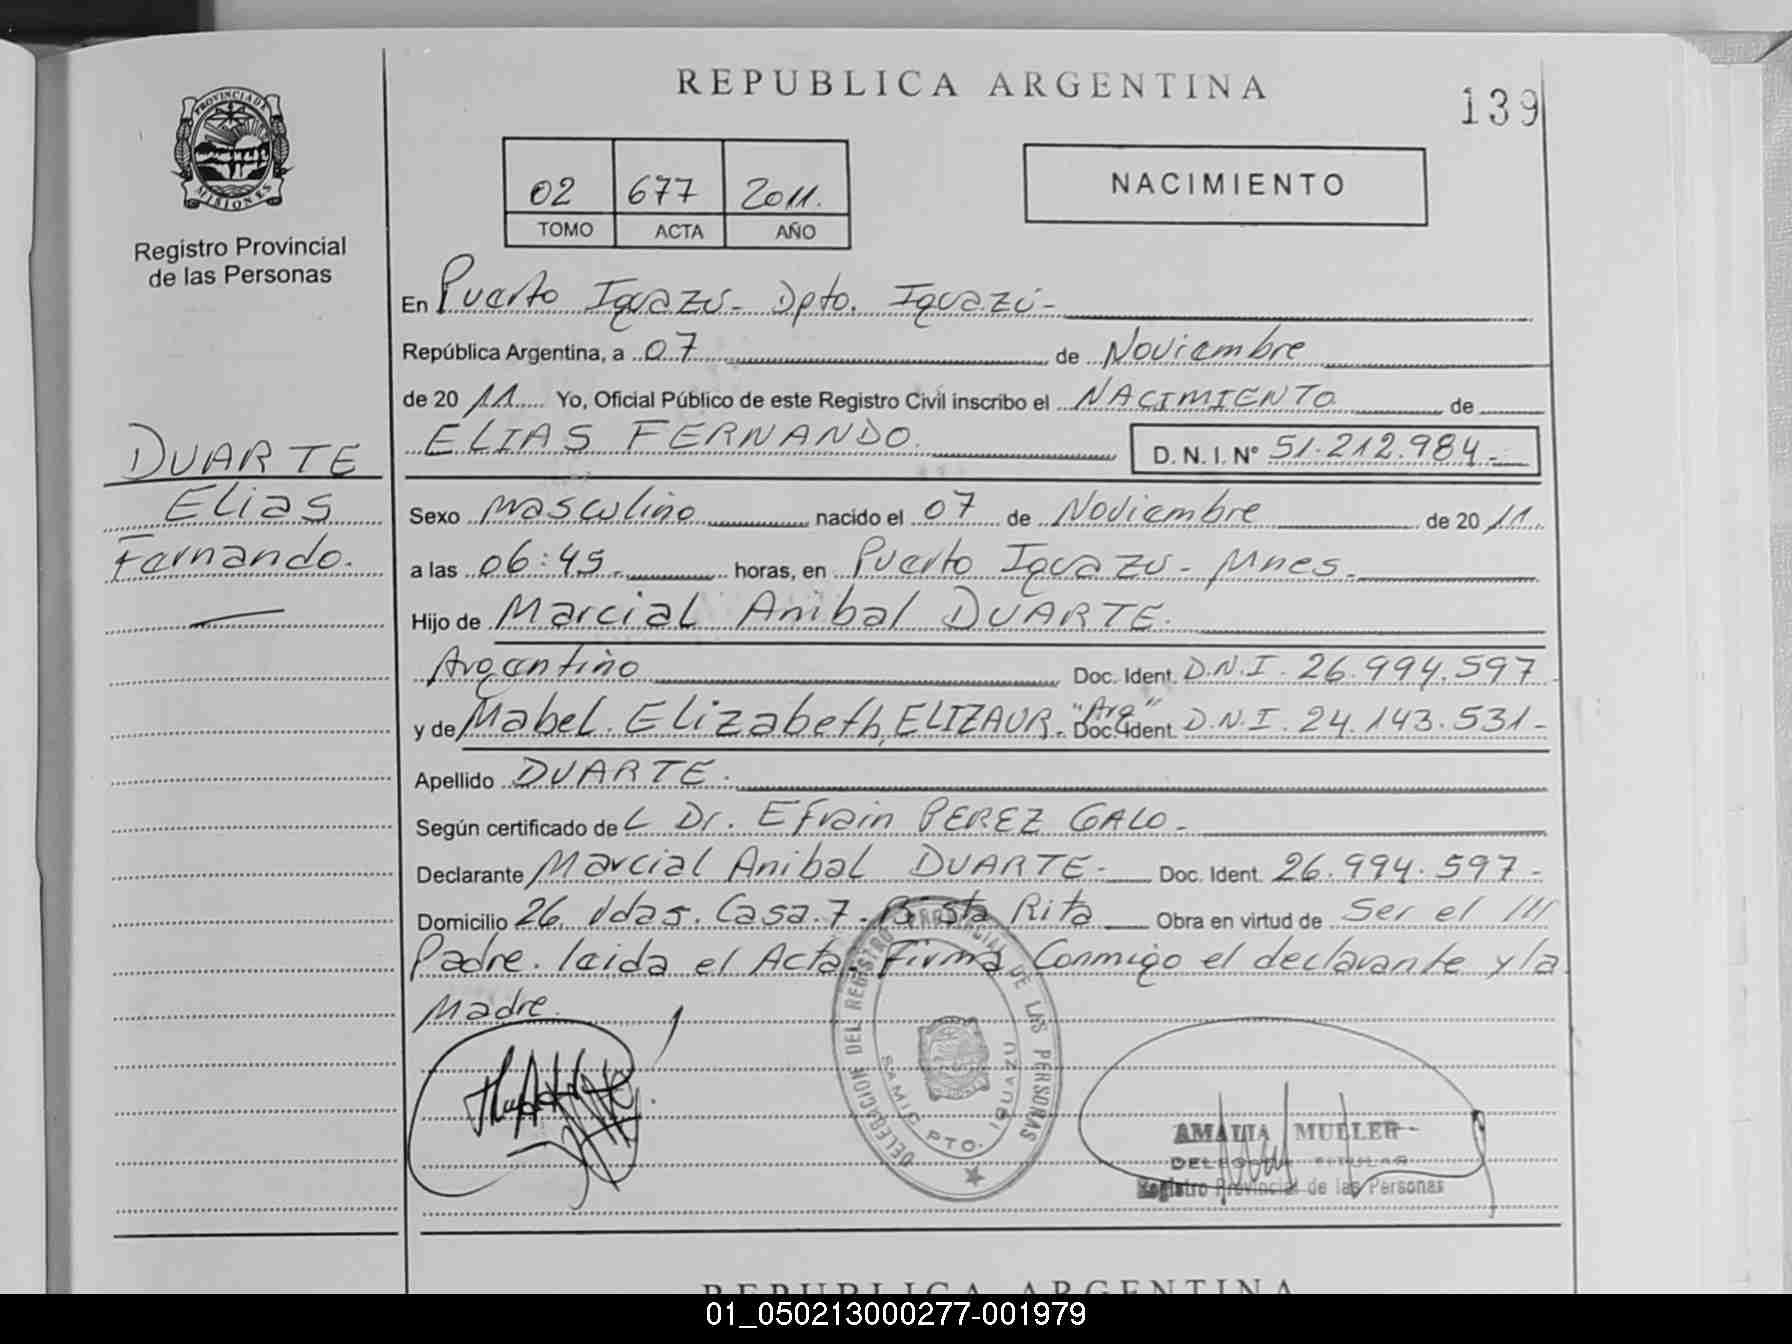 REPUBLICA ARGENTINA
139
PROVINCIA DE
MISIONES
Registro Provincial
de las Personas
02 677 2011.
TOMO ACTA AÑO
NACIMIENTO
En Puerto Iguazú - Dpto. Iguazú -
República Argentina, a 07 de Noviembre
de 20 11 Yo, Oficial Público de este Registro Civil inscribo el NACIMIENTO de
ELIAS FERNANDO. D. N. I. N° 51.212.984.-
DUARTE
Elias
Fernando.
Sexo masculino nacido el 07 de Noviembre de 20 11
a las 06:45 horas, en Puerto Iguazú - Mnes.
Hijo de Marcial Anibal DUARTE.
Argentino Doc. Ident. D.N.I. 26.994.597
y de Mabel. Elizabeth, ELIZAUR. "Arg" Doc. Ident. D.N.I. 24.143.531-
Apellido DUARTE.
Según certificado de L Dr. Efrain PEREZ GALO -
Declarante Marcial Anibal DUARTE - Doc. Ident. 26.994.597-
Domicilio 26 Vdas. Casa.7. B Sta Rita Obra en virtud de Ser el
Padre. leida el Acta. Firma Conmigo el declarante y la
Madre.
DELEGACION DEL REGISTRO PROVINCIAL DE LAS PERSONAS
SAMIC PTO. IGUAZU
AMALIA MULLER
DELEGADA TITULAR
Registro Provincial de las Personas
REPUBLICA ARGENTINA
01_050213000277-001979